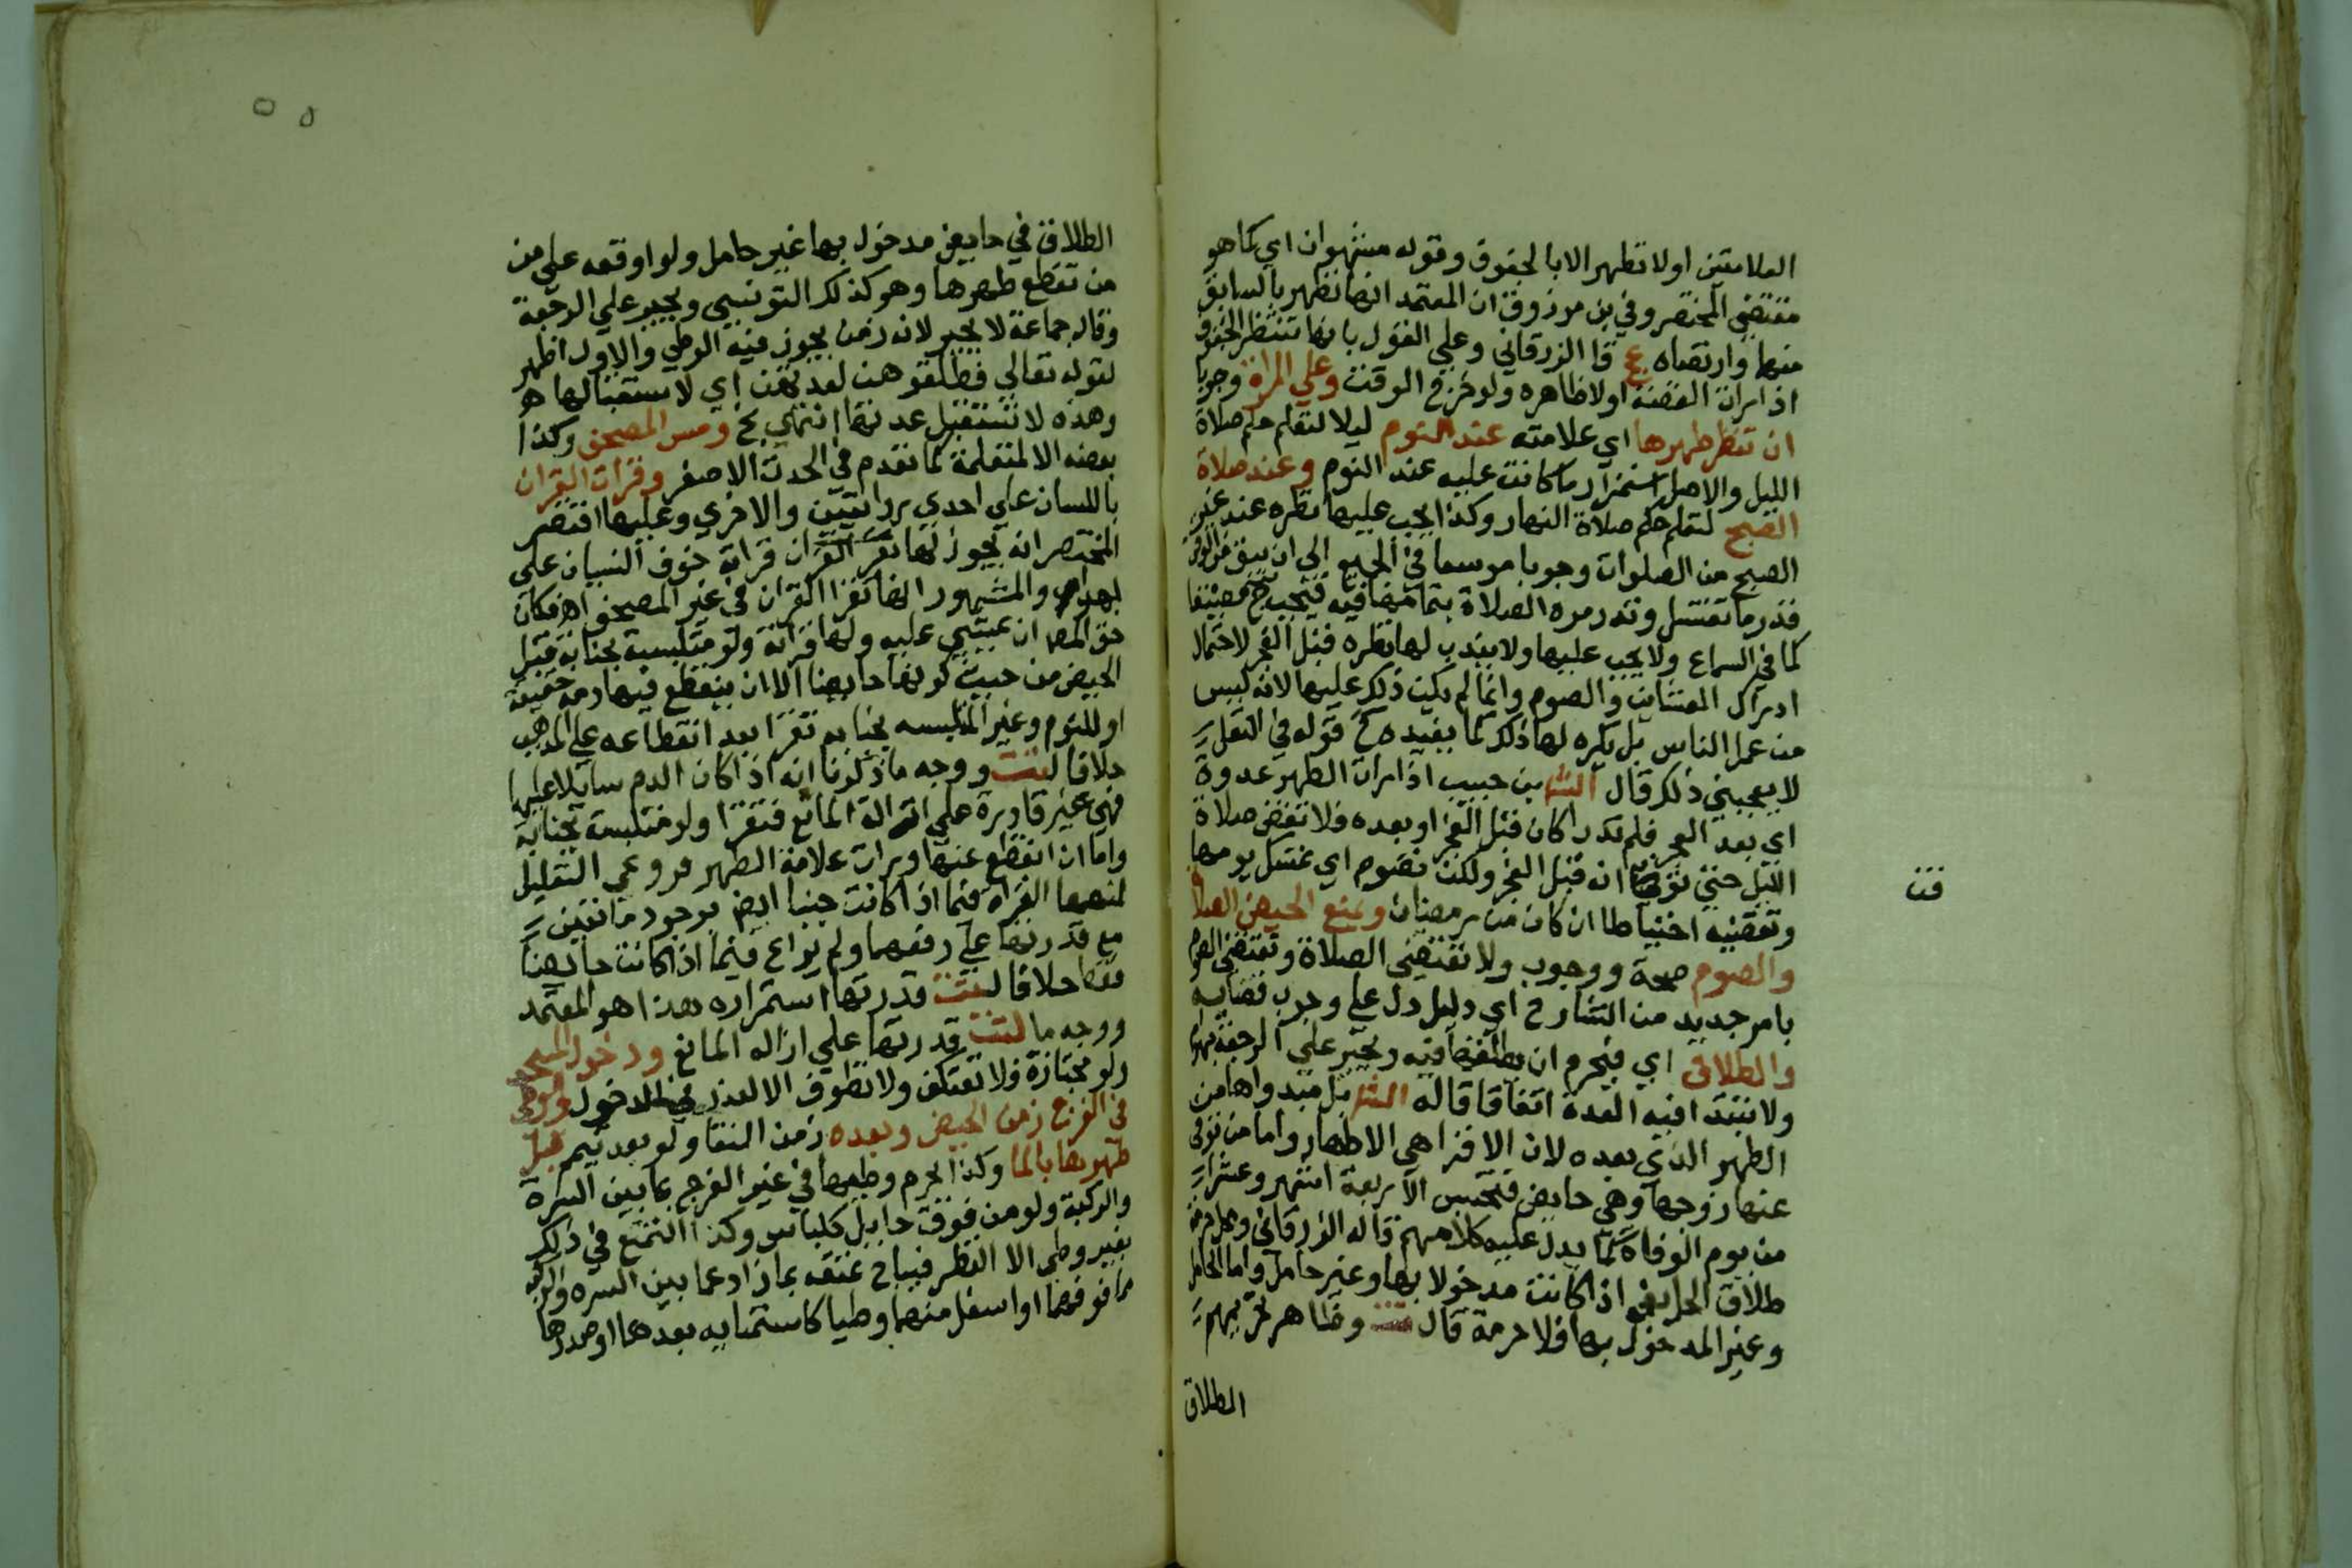 العلامتين اولا تطهر الا بالجفوف وقوله مشهوران اي كما هو
مقتضي المختصر وفي بن مرزوق ان المعتمد انها تطهر بالسابق
منهما وارتضاه ع قا الزرقاني وعلي القول بانها تنتظر الجفوف
اذا رات القصة اولا ظاهره ولو خرج الوقت وعلي المراة وجوبا
ان تنظر طهرها اي علامته عند النوم ليلا لتعلم حكم صلاة
الليل والاصل استمرار ما كانت عليه عند النوم وعند صلاة
الصبح لتعلم حكم صلاة النهار وكذا يجب عليها نظره عند غير
الصبح من الصلوات وجوبا موسعا في الجميع الي ان يبقي من الوقت
قدر ما تغتسل وتدرك الصلاة فيجب
كما في السماع ولا يجب عليها ولا يندب لها نظره قبل الفجر لاحتمال
ادراك العشاءين والصوم وانما لم يكن ذلك عليها لانه ليس
من عمل الناس بل يكره لها ذلك كما يفيده قوله في النقل
لا يعجبني ذلك قال الش بن حبيب اذا رات الطهر غدوة
اي بعد الفجر فلم تدر اكان قبل الفجر او بعده فلا تقض صلاة
الليل حتي توقن انه قبل الفجر ولكن تصوم اي غسل يومها
وتقضيه احتياطا ان كان من رمضان ويمنع الحيض الصلاة
والصوم صحة ووجوب ولا تقتضي الصلاة وتقتضي الصوم
بامر جديد من الشارح اي دليل دل علي وجوب قضايه
والطلاق اي فيحرم ان يطلقها فيه ويجبر علي الرجعة
ولا تبتدا فيه العدة اتفاقا قاله الش بل مبدواها من
الطهر الذي بعده لان الاقرا هي الاطهار واما من توفي
عنها زوجها وهي حايض فتحسب الاربعة اشهر وعشرا
من يوم الوفاة كما يدل عليه كلامهم قاله الزرقاني ومحل حرمة
طلاق الحايض اذا كانت مدخولا بها وغير حامل واما الحامل
وغير المدخول بها فلا حرمة قال تت وظاهر تحريمهم
الطلاق
تت
الطلاق في حايض مدخول بها غير حامل ولو اوقعه علي من
من تقطع طهرها وهو كذلك التونسي ويجبر علي الرجعة
وقال جماعة لا يجبر لانه زمن يجوز فيه الوطي والاول اظهر
لقوله تعالي فطلقوهن لعدتهن اي لاستقبالها
وهذه لا تستقبل عدتها انتهي ومس المصحف وكذا
بعضه الا لمتعلمة كما تقدم في الحدث الاصغر وقراة القران
باللسان علي احدي روايتين والاخري وعليها اقتصر
المختصر انه يجوز لها تقر القران قراة خوف النسيان علي
والمشهور انها تقرا القران في غير المصحف اه فكان
حق المص ان يمشي عليه ولها قراته ولو متلبسة بجنابة قبل
الحيض من حيث كونها حايضا الا ان ينقطع فيها دمه حقيقة
او للنوم وغير المتلبسه بجنابه تقرا بعد انقطاعه علي المذهب
خلافا لتت ووجه ما ذكرنا انه اذا كان الدم سايلا عليها
فهي غير قادرة علي ازالة المانع فتقرا ولو متلبسة بجنابة
واما ان انقطع عنها ورات علامة الطهر فروعي التعليل
لمنعها القراة فيما اذا كانت جنبا ايض بوجود مانعين
مع قدرتها علي رفعهما ولم يراع فيما اذا كانت حايضا
فقط خلافا لتت قدرتها استمراره هذا هو المعتمد
ووجه ما لتت قدرتها علي ازاله المانع ودخول المسجد
ولو مجتازة فلا تعتكف ولا تطوف الا لعذر في الدخول والوطي
في الفرج زمن الحيض وبعده زمن النقا ولو بعد تيمم قبل
طهرها بالما وكذا يحرم وطيها في غير الفرج مما بين السرة
والركبة ولو من فوق حايل كلباس وكذا التمتع في ذلك
بغير وطي الا النظر فيباح تمتعه بما زاد عما بين السره والركبه
مما فوقهما او اسفل منهما وطيا كاستمنا بيدها او صدرها